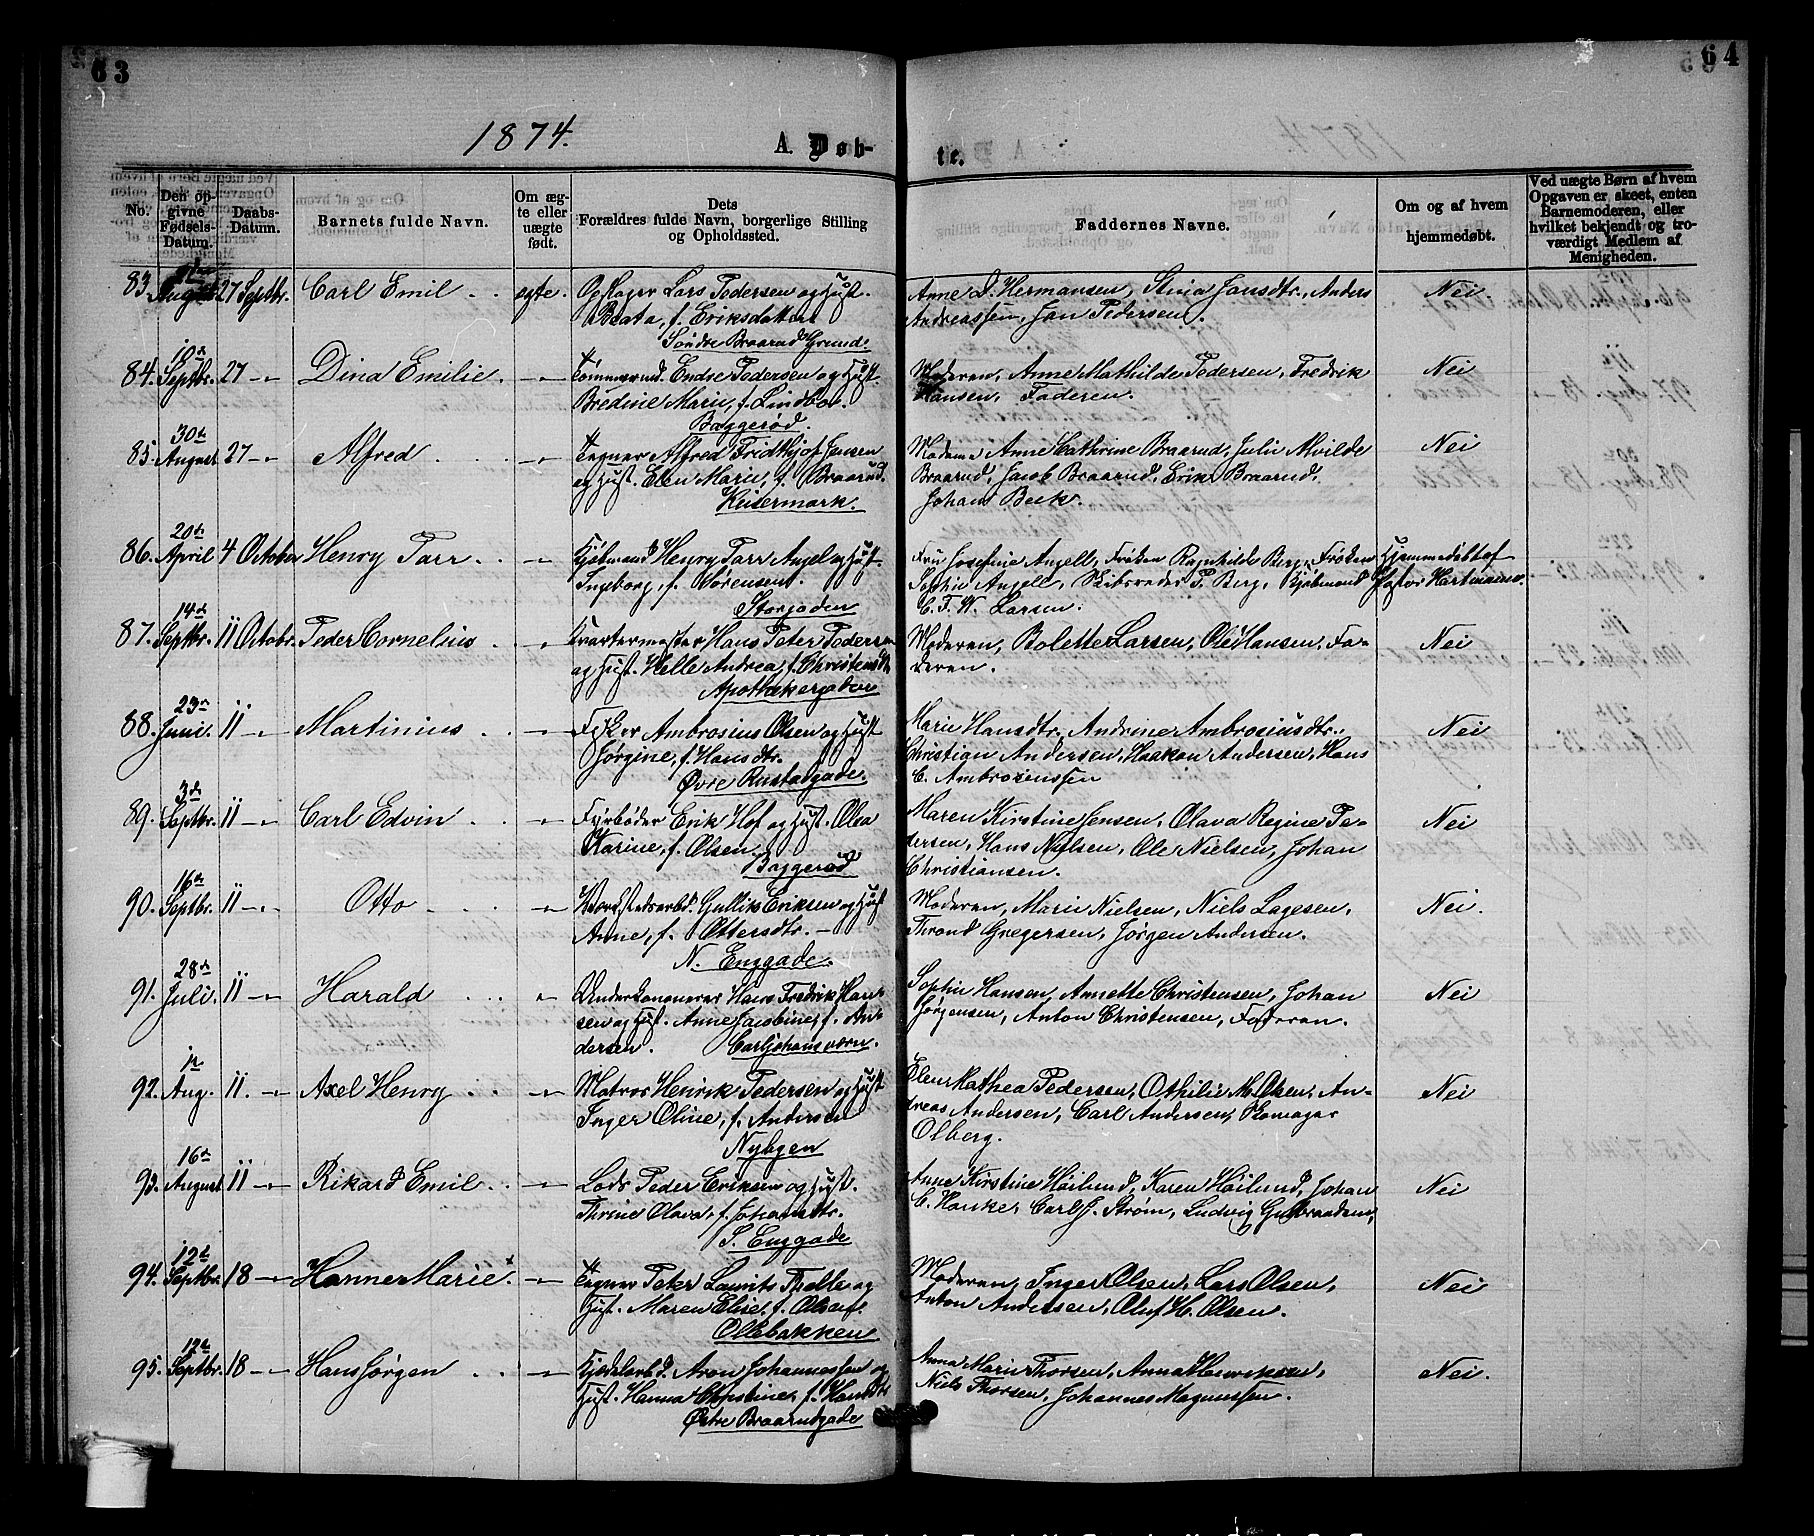 63
64
1874.
A. Døb-
te.
No.
Den op-
givne
Fødsels-
Datum.
Daabs-
Datum.
Barnets fulde Navn.
Om æg-
te eller
uægte
født.
Dets
Forældres fulde Navn, borgerlige Stilling
og Opholdssted.
Faddernes Navne.
Om og af hvem
hjemmedøbt.
Ved uægte Børn af hvem
Opgaven er skeet, enten
Barnemoderen, eller
hvilket bekjendt og tro-
værdigt Medlem af
Menigheden.
83. August 27 Septbr. Carl Emil ægte. Opsager Lars Pedersen og Hust.
Beata, f. Eriksdatter
Søndre Braarud Grund.
Anne D. Hermansen, Stina Jansdtr., Anders
Andreassen, Jan Pedersen.
Nei.
10de
84. Septbr. 27 -"- Dina Emilie -"- Tømmermd. Endre Pedersen og Hust.
Bredine Marie, f. Lindboe.
Baggerød.
Moderen, Anne Mathilde Pedersen, Fredrik
Hansen, Faderen.
Nei
30te
85. August 27 -"- Alfred -"- Tegner Alfred Fridthjof Jensen
og Hust. Elen Marie, f. Braarud.
Keisermark.
Madame Anne Cathrine Braarud, Julie Alvilde
Braarud, Jacob Braarud, Erik Braarud,
Johan Beck.
Nei
20de
86. April 4 October Henry Parr -"- Kjøbmand Henry Parr Angel og Hust.
Ingeborg, f. Sørensen.
Storgaden
Fru Josefine Angell, Frøken Ragnhilde Berg, Frøken
Sophie Angell, Skibsreder P. Berg, Kjøbmand
C. F. W. Larsen.
Hjemmedøbt af
Pastor Hartmann.
14de
87. Septbr. 11 Octobr. Peder Cornelius -"- Kvartermester Hans Peter Pedersen
og Hust. Helle Andrea, f. Christensdtr
Apothekergaden
Moderen, Bolette Larsen, Ole Hansen, Fa-
deren.
Nei
23de
88. Juni. 11 -"- Martinius -"- Fisker Ambrosius Olsen og Hust
Jørgine, f. Hansdtr.
Øvre Rustadgade.
Marie Hansdtr., Andrine Ambrosiusdtr.,
Christian Andersen, Haakon Andersen, Hans
C. Ambrosenssen
Nei
3de
89. Septbr. 11 -"- Carl Edvin -"- Fyrbøder Erik Hof og Hust. Olea
Karine, f. Olsen
Baggerød
Maren Kirstine Jensen, Olava Regine Pe-
dersen, Hans Nielsen, Ole Nielsen, Johan
Christiansen.
Nei
16de
90. Septbr. 11 -"- Otto -"- Værkstedsarbd. Gullik Eriksen og Hust
Anne, f. Ottersdtr.
N. Enggade.
Moderen, Marie Nielsen, Niels Lagesen,
Thrond Gregersen, Jørgen Andersen.
Nei.
28de
91. Juli. 11 -"- Harald -"- Underkanoneer Hans Fredrik Han-
sen og Hust. Anne Jacobine, f. An-
dersen. Carljohansværn.
Sophie Hansen, Annette Christensen, Johan
Jørgensen, Anton Christensen, Faderen.
Nei
1ste
92. Aug. 11. -"- Axel Henry -"- Matros Henrik Pedersen og Hust
Inger Oline, f. Andersen
Nybyen
Elen Mathea Pedersen, Othilie M. Olsen, An-
dreas Andersen, Carl Andersen, Skomager
Olberg.
Nei
16de
93. August 11 -"- Rikard Emil -"- Lods Peder Eriksen og Hust.
Thrine Olava, f. Johansdtr.
S. Enggade
Anne Kirstine Höilund, Karen Höilund, Johan
C. Hanker, Carl J. Strøm, Ludvig Gulbrandsen,
Nei
12de
94. Septbr. 18 -"- Hanne Marie -"- Tegner Peter Laurits Thelle og
Hust. Maren Elise, f. Olsen.
Ollebakken
Moderen, Inger Olsen, Lars Olsen,
Anton Andersen, Oluf H. Olsen.
Nei
12de
95. Septbr. 18 -"- Hans Jørgen -"- Kjedelarbd. Aron Johannessen og
Hust. Hanna Christine, f. Hansdtr
Østre Braarudgade
Anna Marie Thorsen, Anna Henriksen,
Niels Thorsen, Johannes Magnussen.
Nei.